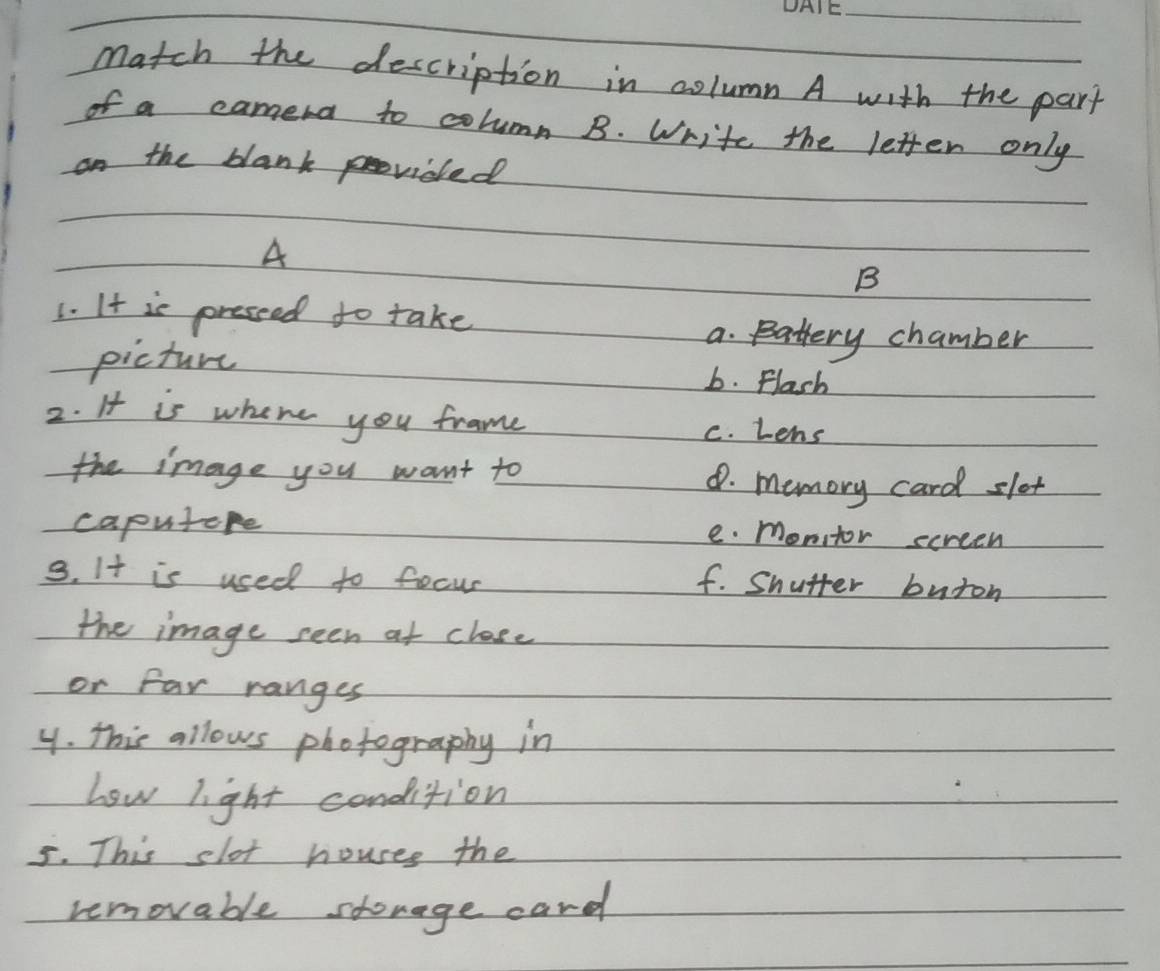 DATE
Match the description in column A with the part
of a camera to column B. Write the letter only
on the blank provided
A
B
1. It is pressed to take
picture
2. It is where you frame
the image you want to
caputere
3. It is used to focus
the image seen at close
or far ranges
4. this allows photography in
low light condition
5. This slot houses the
removable storage card
a. Battery chamber
b. Flash
c. Lens
d. Memory card slot
e. Monitor screen
f. Shutter buton